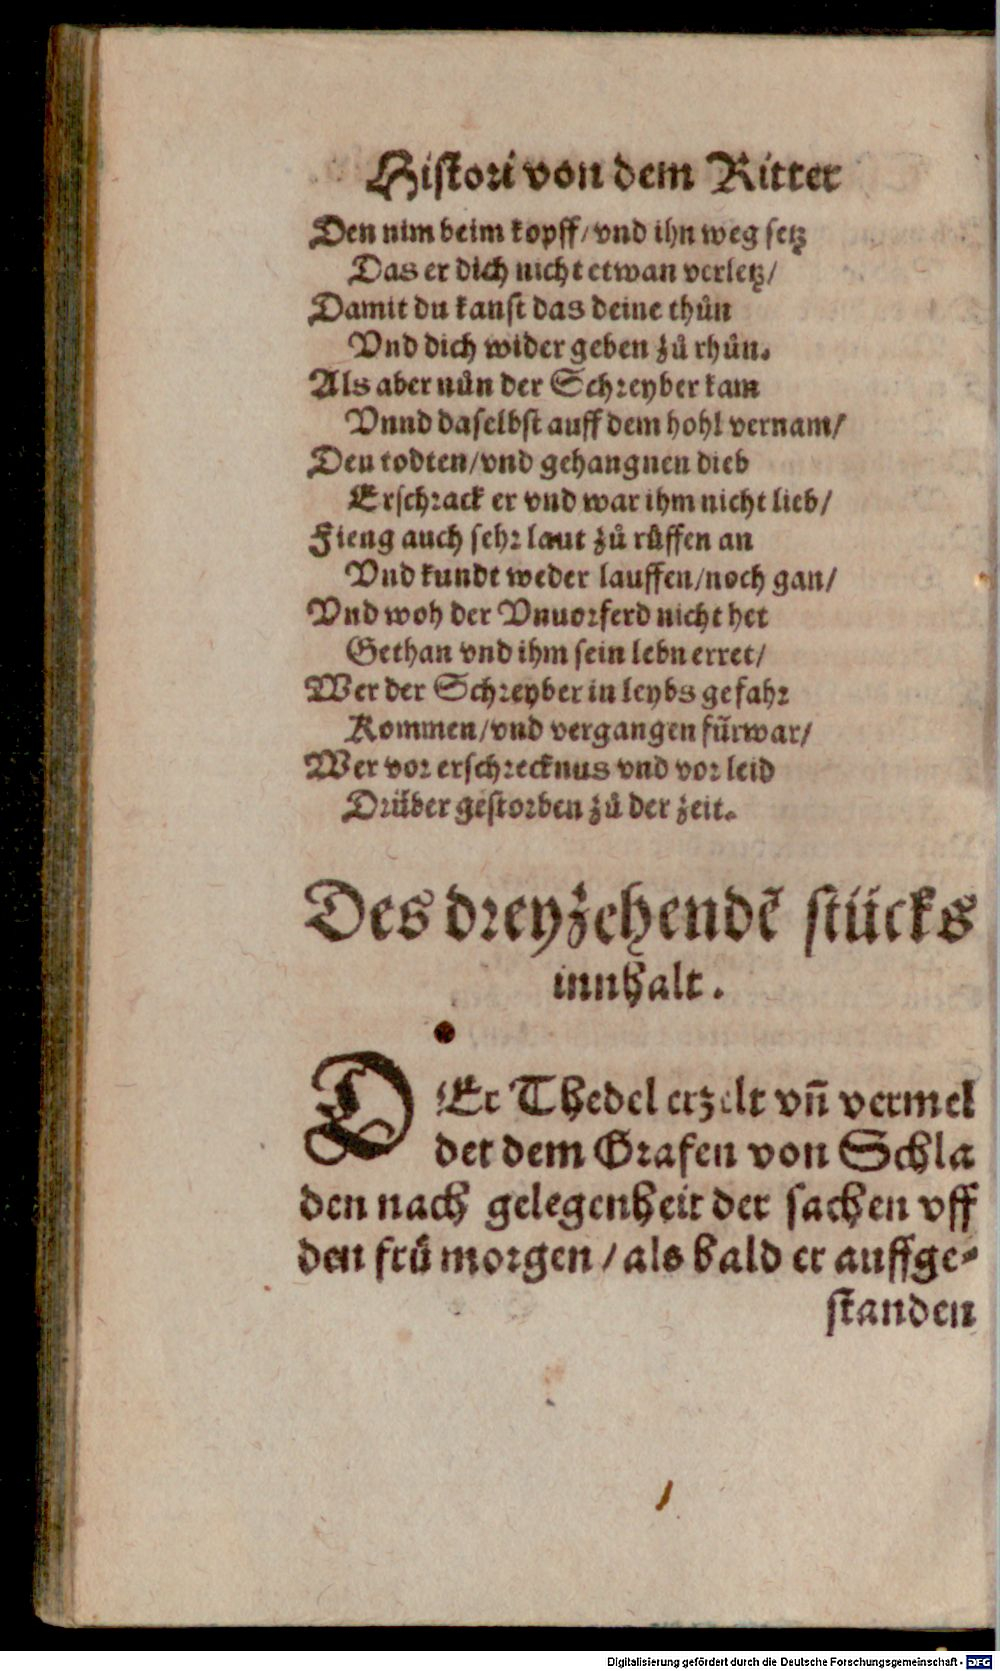 Histori von dem Ritter
Den nim beim kopff/ vnd ihn weg setz
Das er dich nicht etwan verletz/
Damit du kanst das deine thůn
Vnd dich wider geben zů rhůn.
Als aber nůn der Schreyber kam
Vnnd daselbst auff dem hohl vernam/
Den todten/ vnd gehangnen dieb
Erschrack er vnd war ihm nicht lieb/
Fieng auch sehr laut zů růffen an
Vnd kundt weder lauffen/ noch gan/
Vnd woh der Vnuorferd nicht het
Gethan vnd ihm sein lebn erret/
Wer der Schreyber in leybs gefahr
Kommen/ vnd vergangen fürwar/
Wer vor erschrecknus vnd vor leid
Drüber gestorben zů der zeit.
Des dreyzehendẽ stücks
innhalt.
DEr Thedel erzelt vñ vermel
det dem Grafen von Schla
den nach gelegenheit der sachen vff
den frů morgen / als bald er auffge-
standen
Digitalisierung gefördert durch die Deutsche Forschungsgemeinschaft - DFG